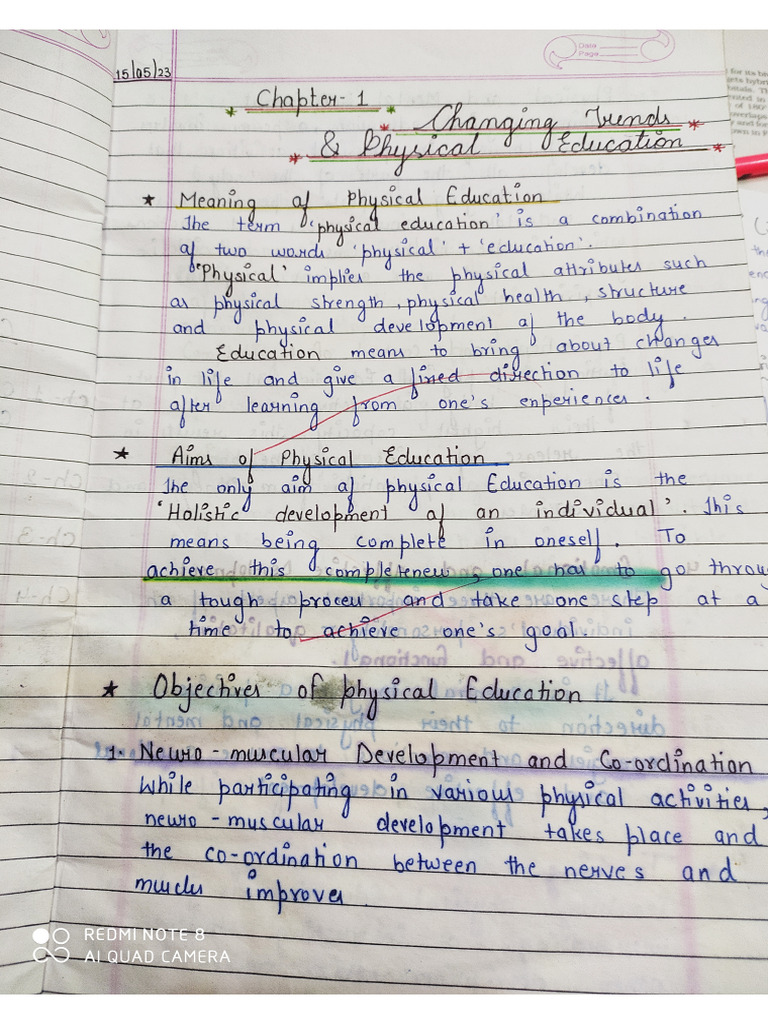 Date
Page
15/05/23
Chapter-1
Changing Trends
& Physical Education
* Meaning of Physical Education
The term 'physical education' is a combination
of two words 'physical' + 'education'.
'Physical' implies the physical attributes such
as physical strength, physical health, structure
and physical development of the body.
Education means to bring about changes
in life and give a fixed direction to life
after learning from one's experiences.
* Aims of Physical Education
The only aim of physical Education is the
'Holistic development of an individual'. This
means being complete in oneself. To
achieve this completeness, one has to go throug
a tough process and take one step at a
time to achieve one's goal.
* Objectives of physical Education
1. Neuro-muscular Development and Co-ordination
While participating in various physical activities,
neuro-muscular development takes place and
the co-ordination between the nerves and
muscles improves
REDMI NOTE 8
AI QUAD CAMERA